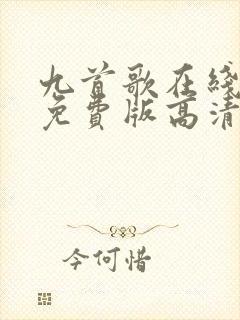 九首歌在綫
免費版高清
今何惜